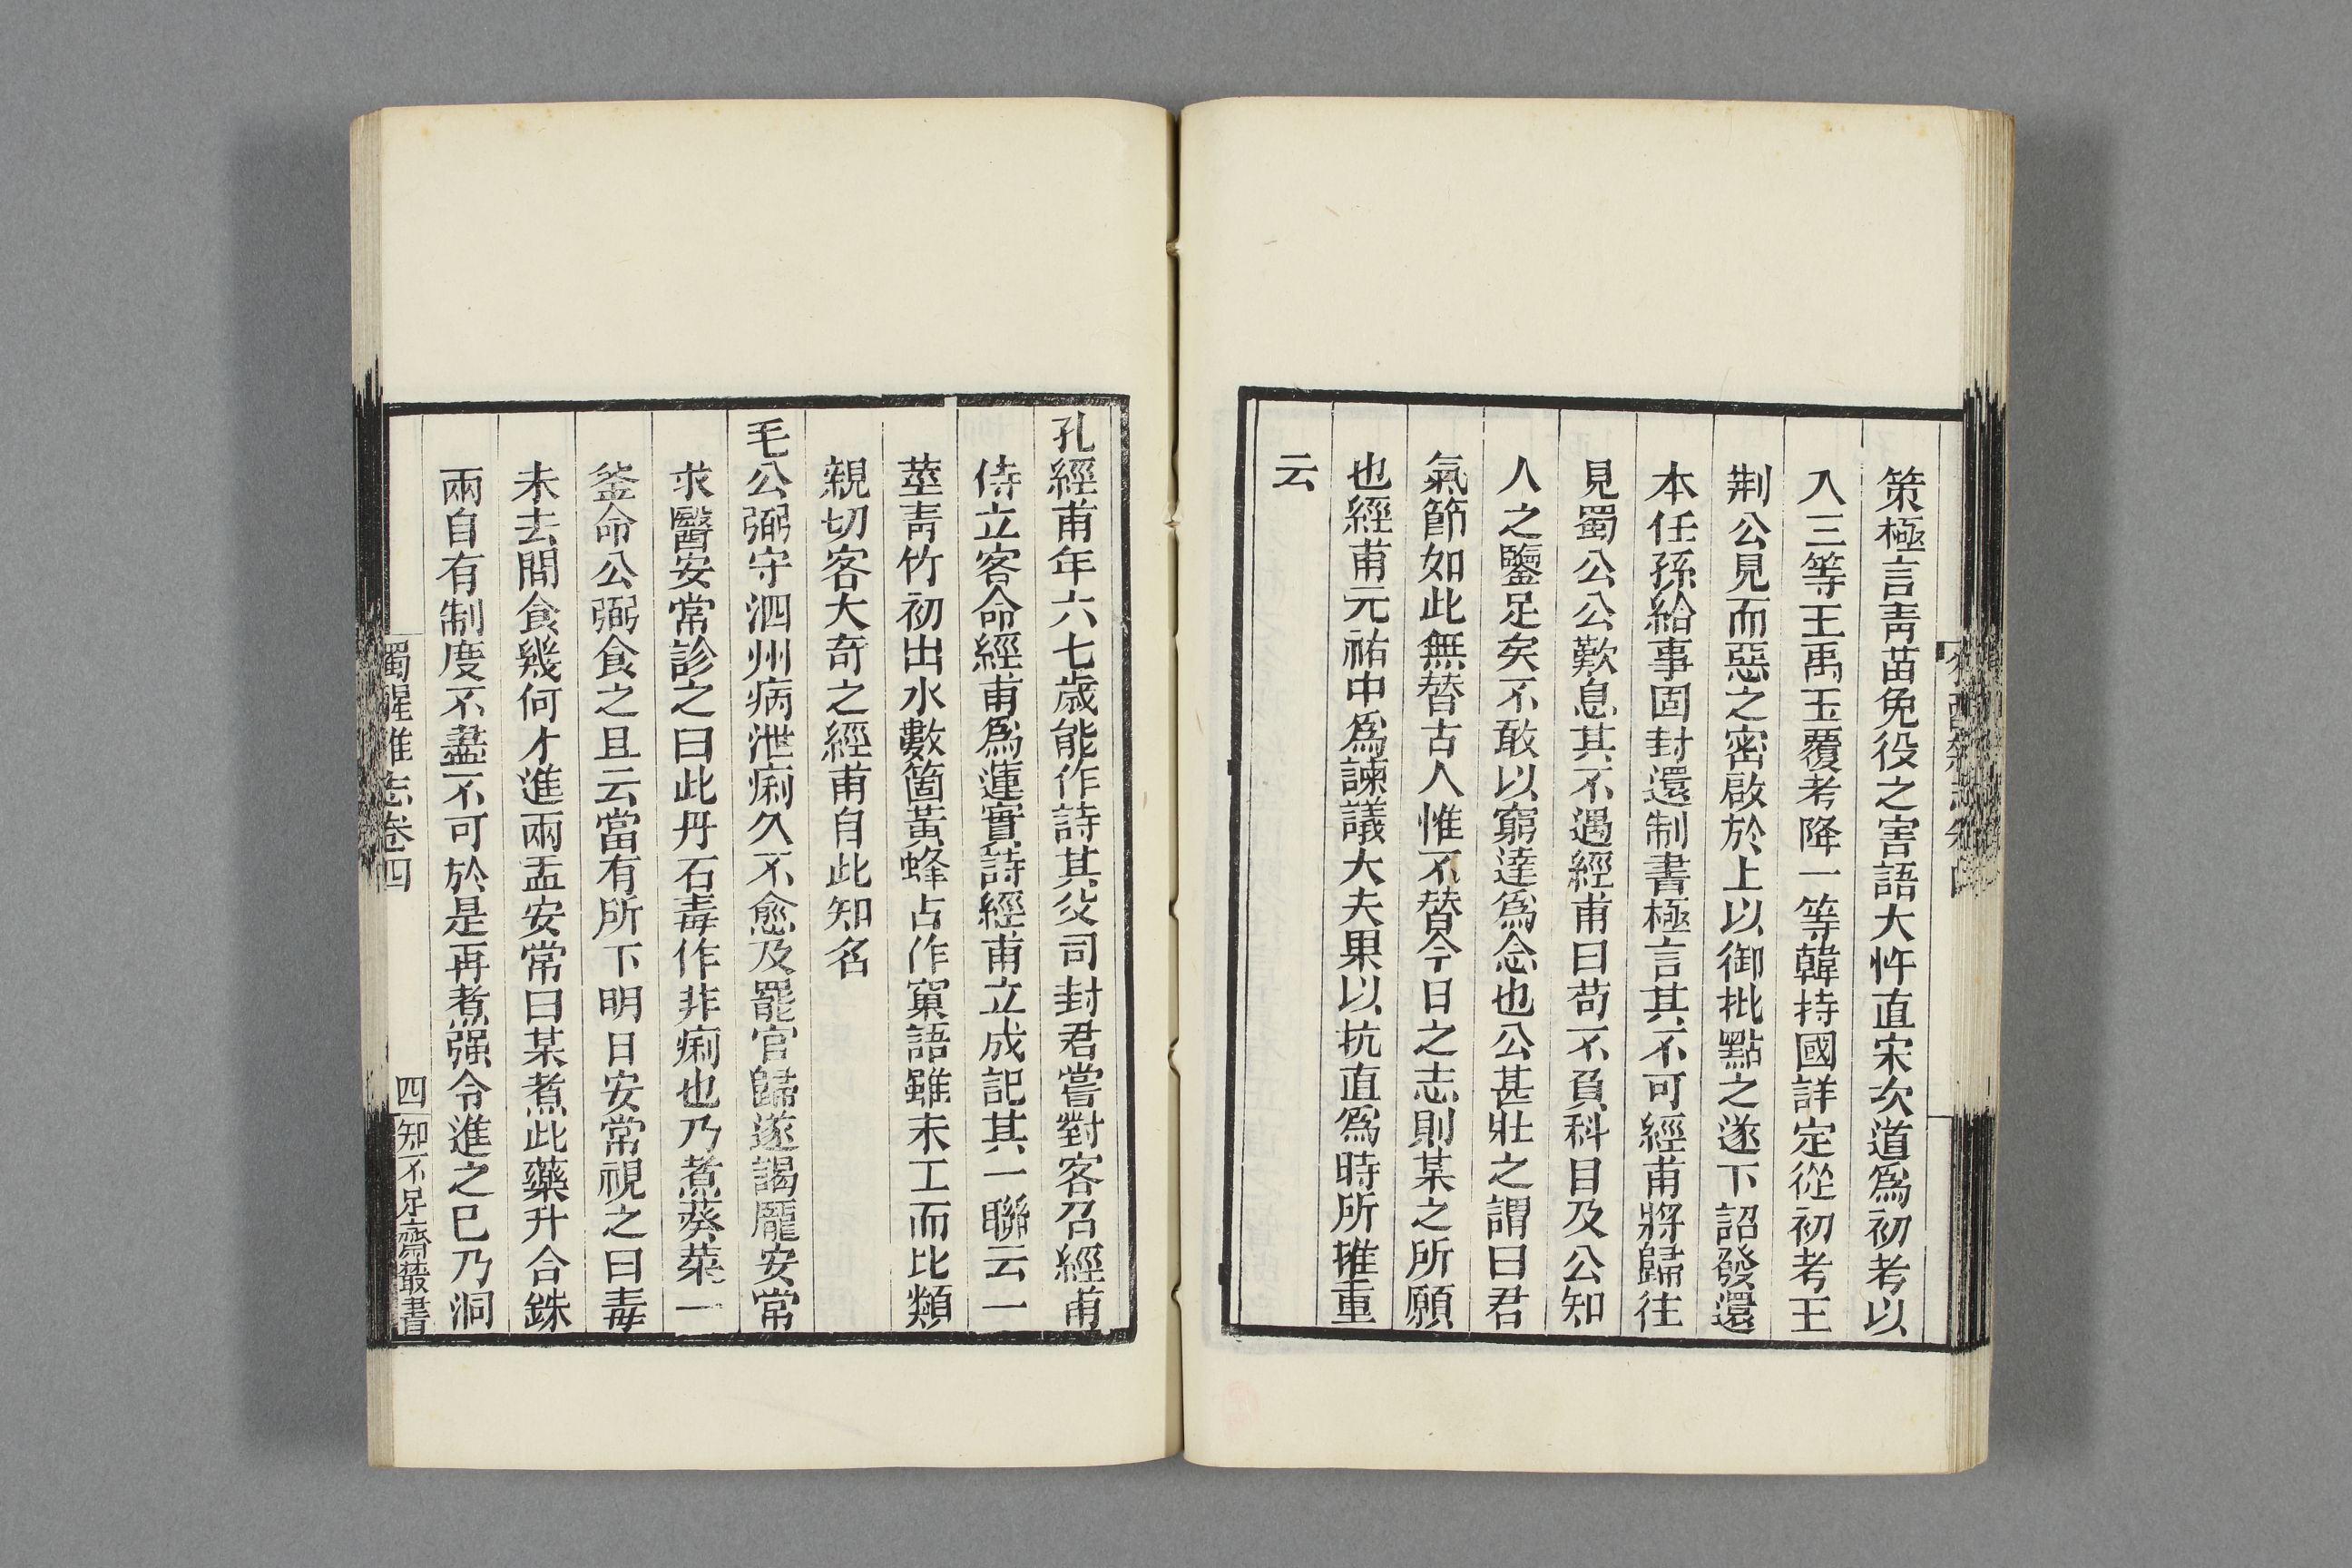 策極言靑苗免役之害語大忤直宋次道爲初考以
入三等王禹玉覆考降一等韓持國詳定從初考王
荆公見而惡之密啟於上以御批點之遂下詔發還
本任孫給事固封還制書極言其不可經甫將歸往
見蜀公公歎息其不遇經甫曰苟不負科目及公知
人之鑒足矣不敢以窮達爲念也公甚壯之謂曰君
氣節如此無替古人惟不替今日之志則某之所願
也經甫元祐中爲諫議大夫果以抗直爲時所推重
云
孔經甫年六七歲能作詩其父司封君嘗對客召經甫
侍立客命經甫爲蓮實詩經甫立成記其一聯云一
莖靑竹初出水數箇黃蜂占作窠語雖未工而比類
親切客大奇之經甫自此知名
毛公弼守泗州病泄痢久不愈及罷官歸遂謁龐安常
求醫安常診之曰此丹石毒作非痢也乃煮葵菜一
釜命公弼食之且云當有所下明日安常視之曰毒
未去問食幾何才進兩盂安常曰某煮此藥升合銖
兩自有制度不盡不可於是再煮强令進之已乃洞
獨醒雜志卷四
四
知不足齋叢書